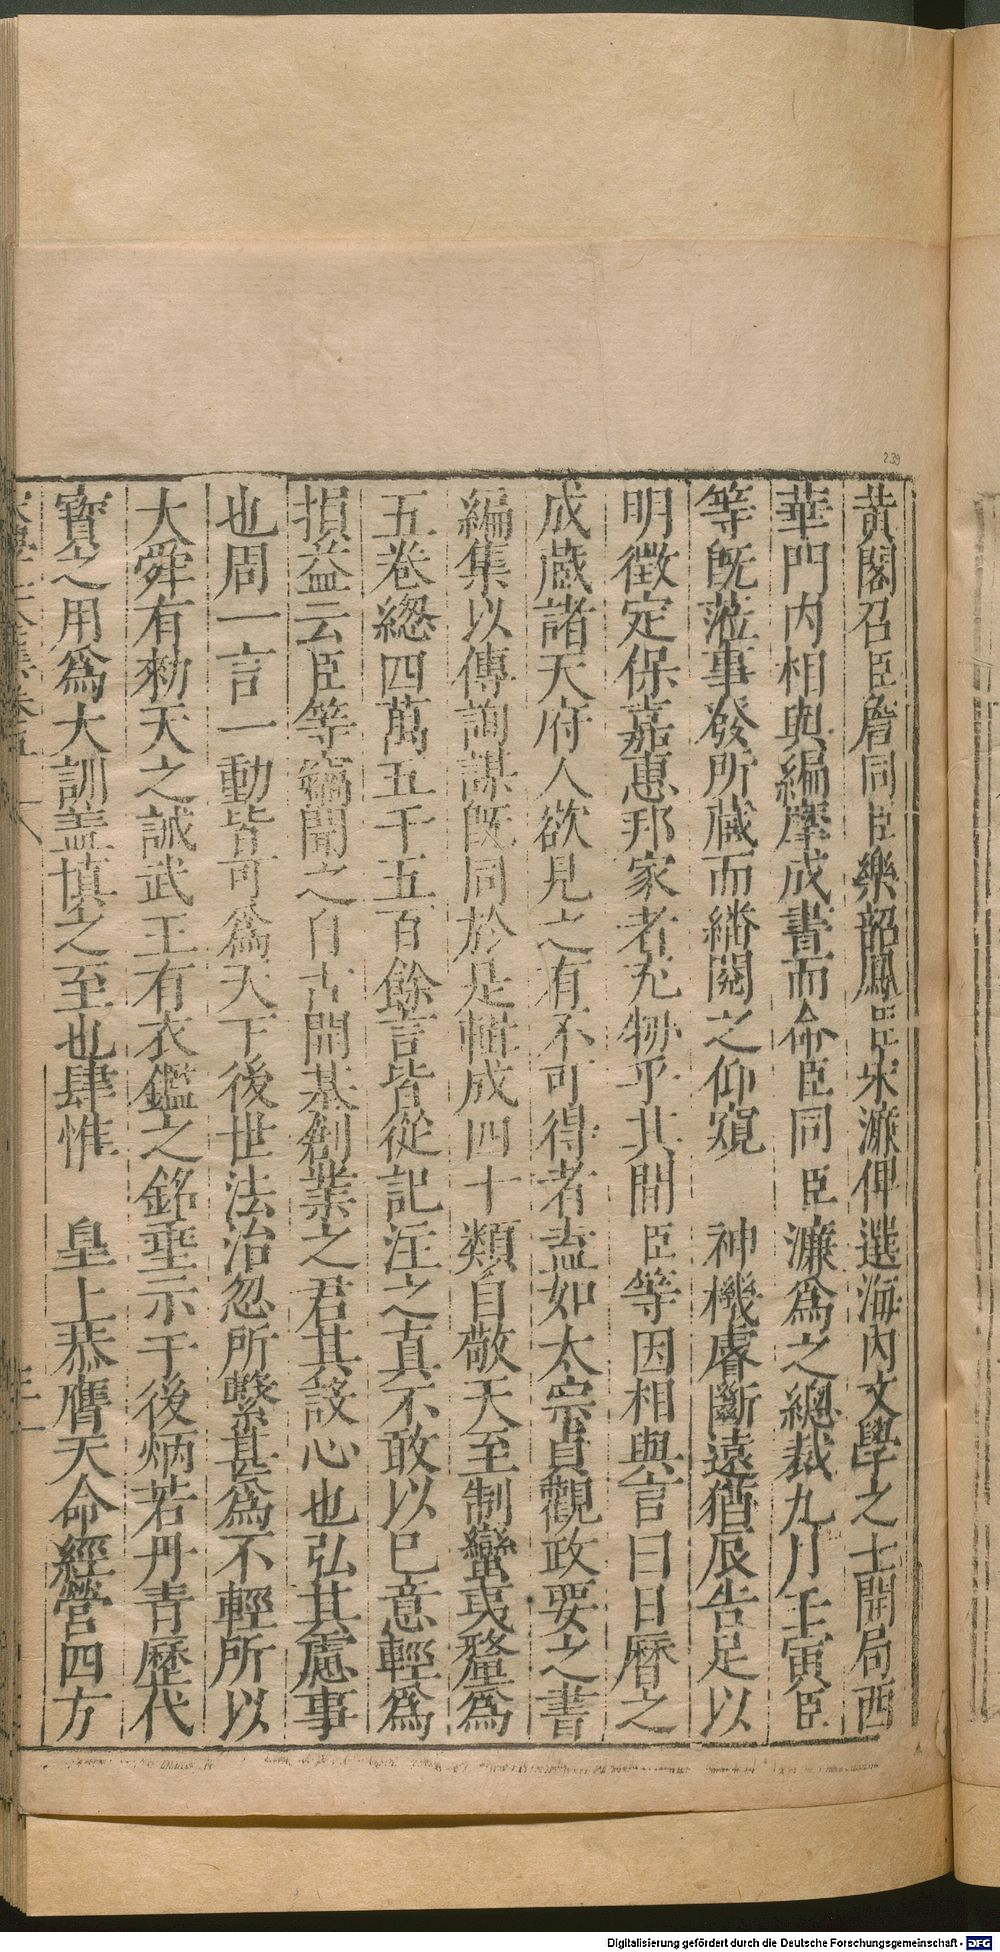 239
黃閣召臣詹同臣樂韶鳳臣宋濂俾選海內文學之士開局西
華門內相與編摩成書而命臣同臣濂爲之總裁九月壬寅臣
等既蒞事發所藏而繙閱之仰窺　神機睿斷遠猶辰告足以
明徵定保嘉惠邦家者充牣乎其間臣等因相與言曰日曆之
成藏諸天府人欲見之有不可得者盍如太宗貞觀政要之書
編集以傳詢謀既同於是輯成四十類自敬天至制蠻夷釐爲
五卷緫四萬五千五百餘言皆從記注之真不敢以已意輕爲
損益云臣等竊聞之自古開基創業之君其設心也弘其慮事
也周一言一動皆可爲天下後世法治忽所繫甚爲不輕所以
大舜有勑天之誡武王有衣鑑之銘垂示于後炳若丹青歷代
寳之用爲大訓盖慎之至也肆惟　皇上恭膺天命經營四方
Digitalisierung gefördert durch die Deutsche Forschungsgemeinschaft - DFG